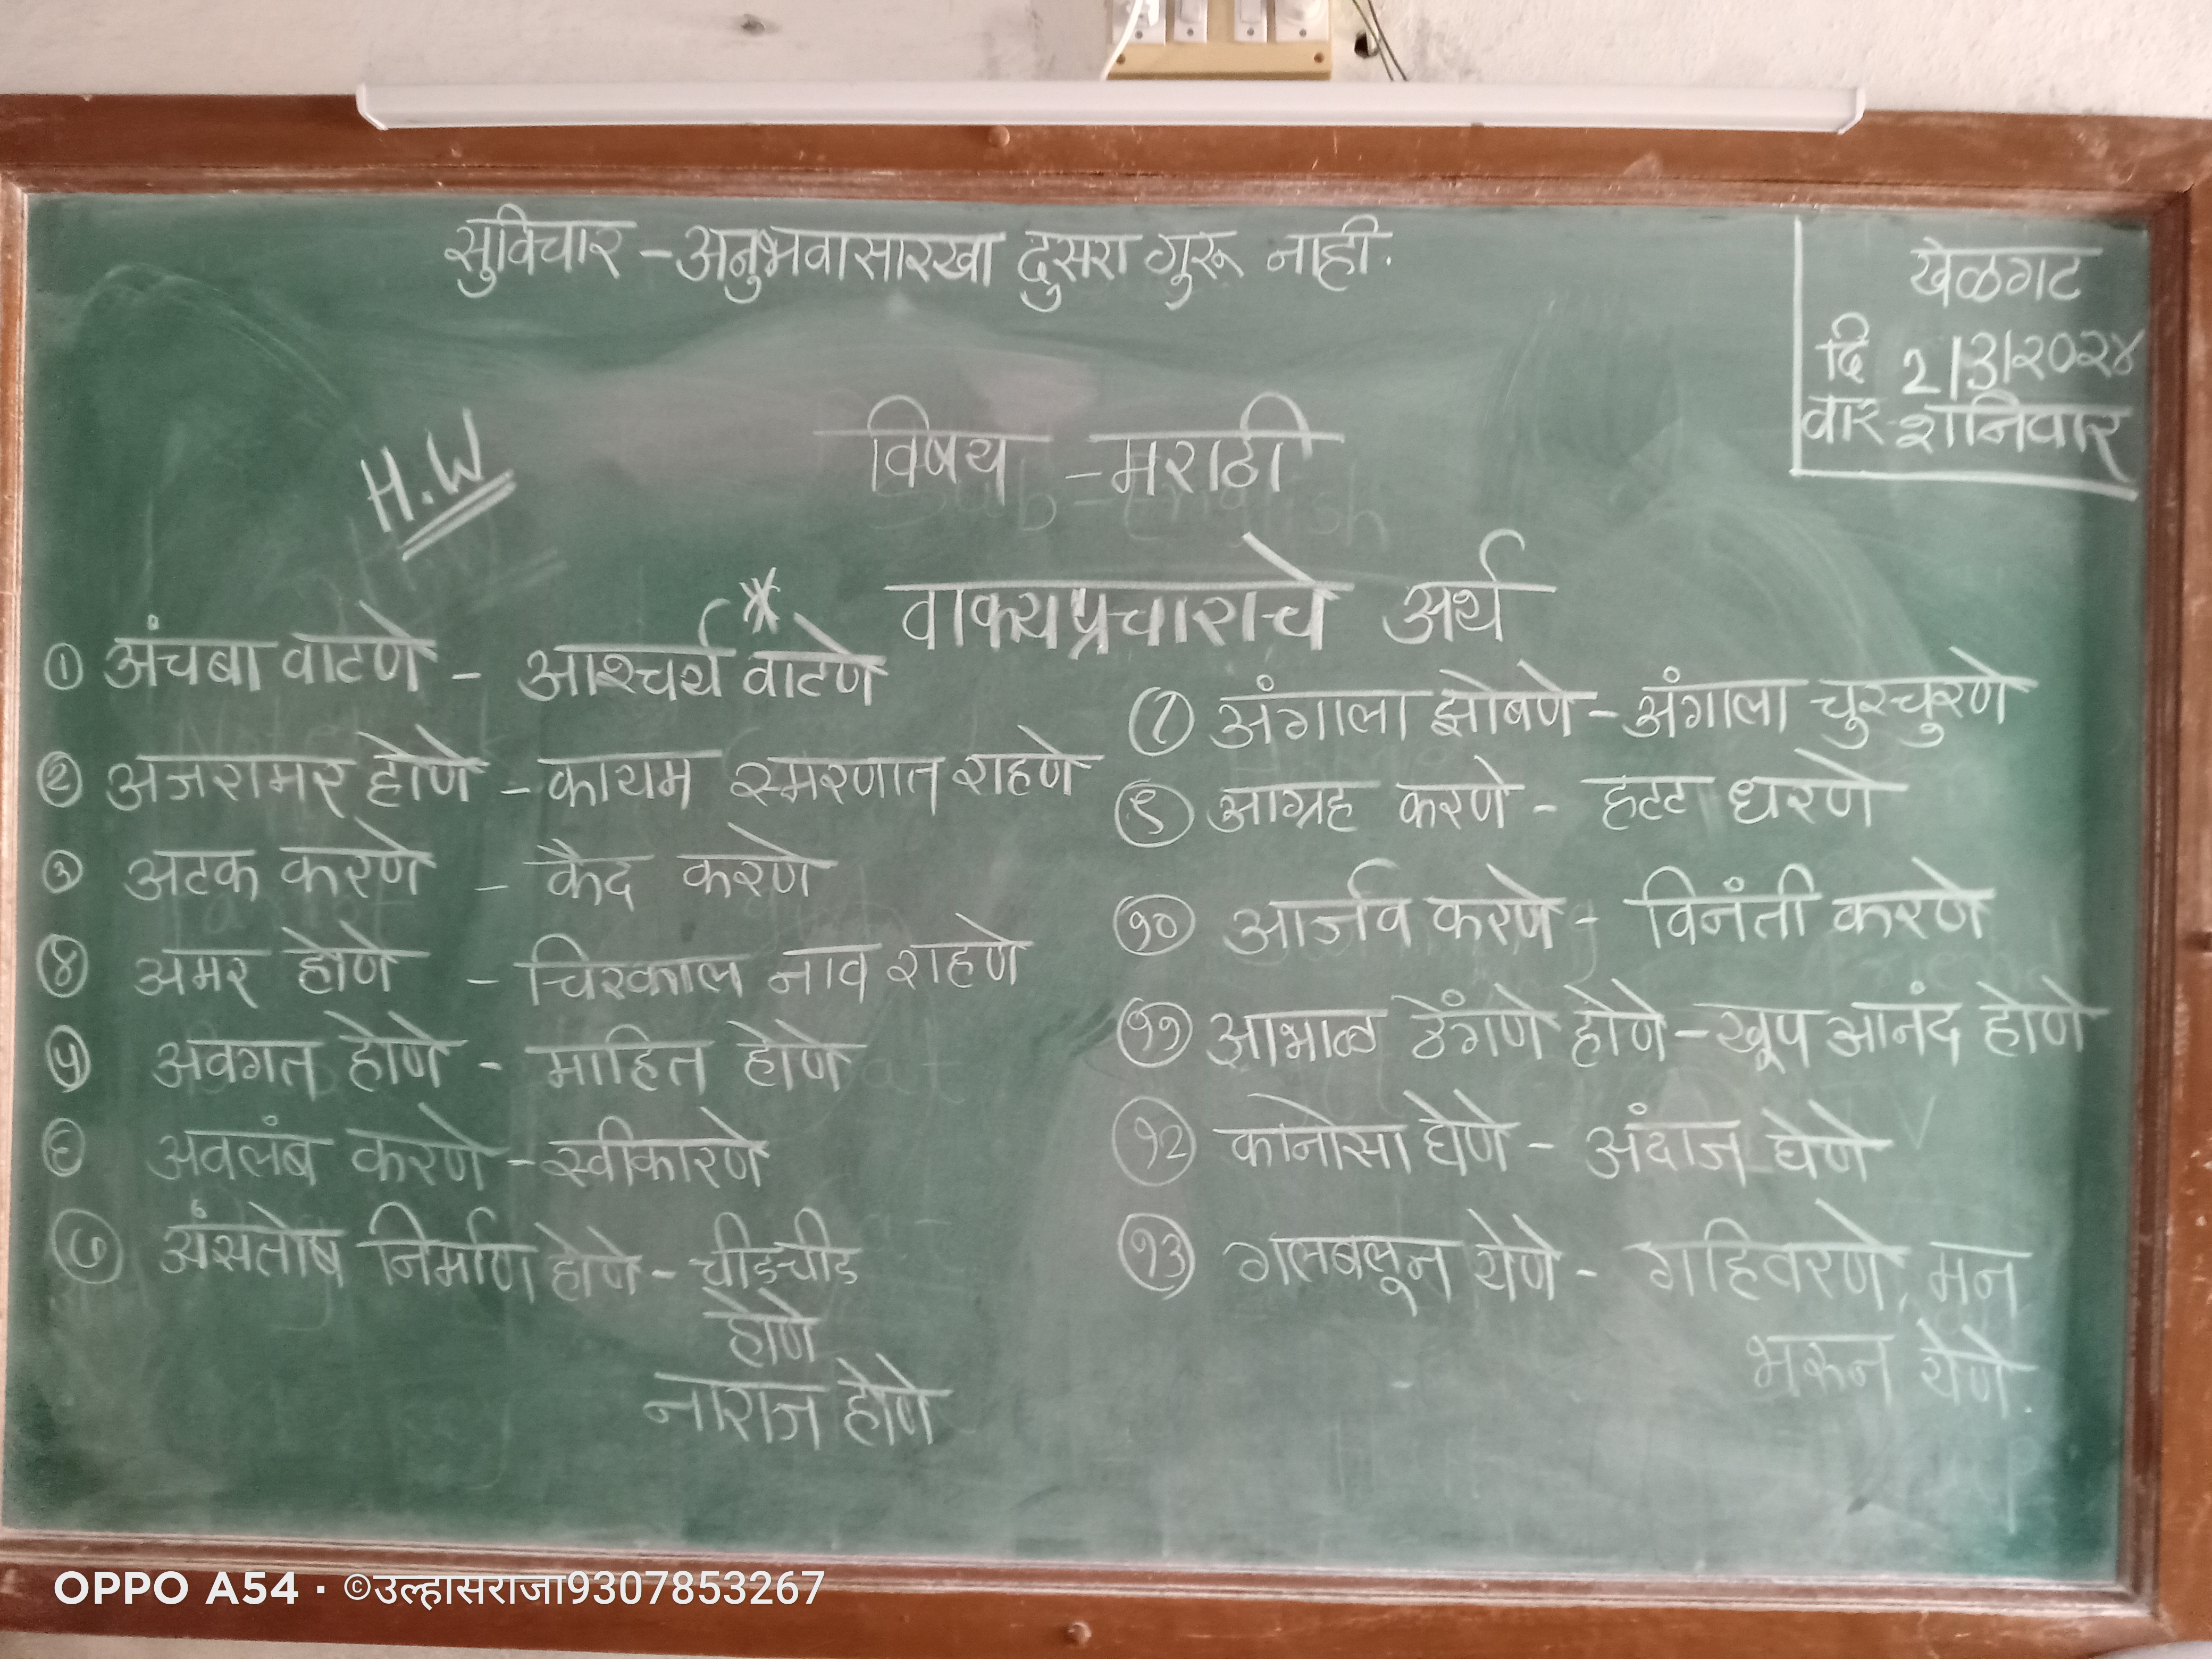 सुविचार - अनुभवासारखा दुसरा गुरू नाही.
खेळगट
दि २/३/२०२४
वार - शनिवार
H.W
विषय - मराठी
* वाक्यप्रचाराचे अर्थ
① अंचबा वाटणे - आश्चर्य वाटणे
② अजरामर होणे - कायम स्मरणात राहणे
③ अटक करणे - कैद करणे
④ अमर होणे - चिरकाल नाव राहणे
⑤ अवगत होणे - माहित होणे
⑥ अवलंब करणे - स्वीकारणे
⑦ अंसतोष निर्माण होणे - चीडचीड
होणे
नाराज होणे
⑧ अंगाला झोंबणे - अंगाला चुरचुरणे
⑨ आग्रह करणे - हटट धरणे
⑩ आर्जव करणे - विनंती करणे
⑪ आभाळ ठेंगणे होणे - खूप आनंद होणे
⑫ कानोसा घेणे - अंदाज घेणे
⑬ गलबलून येणे - गहिवरणे, मन
भरून येणे.
OPPO A54 · ©उल्हासराजा9307853267